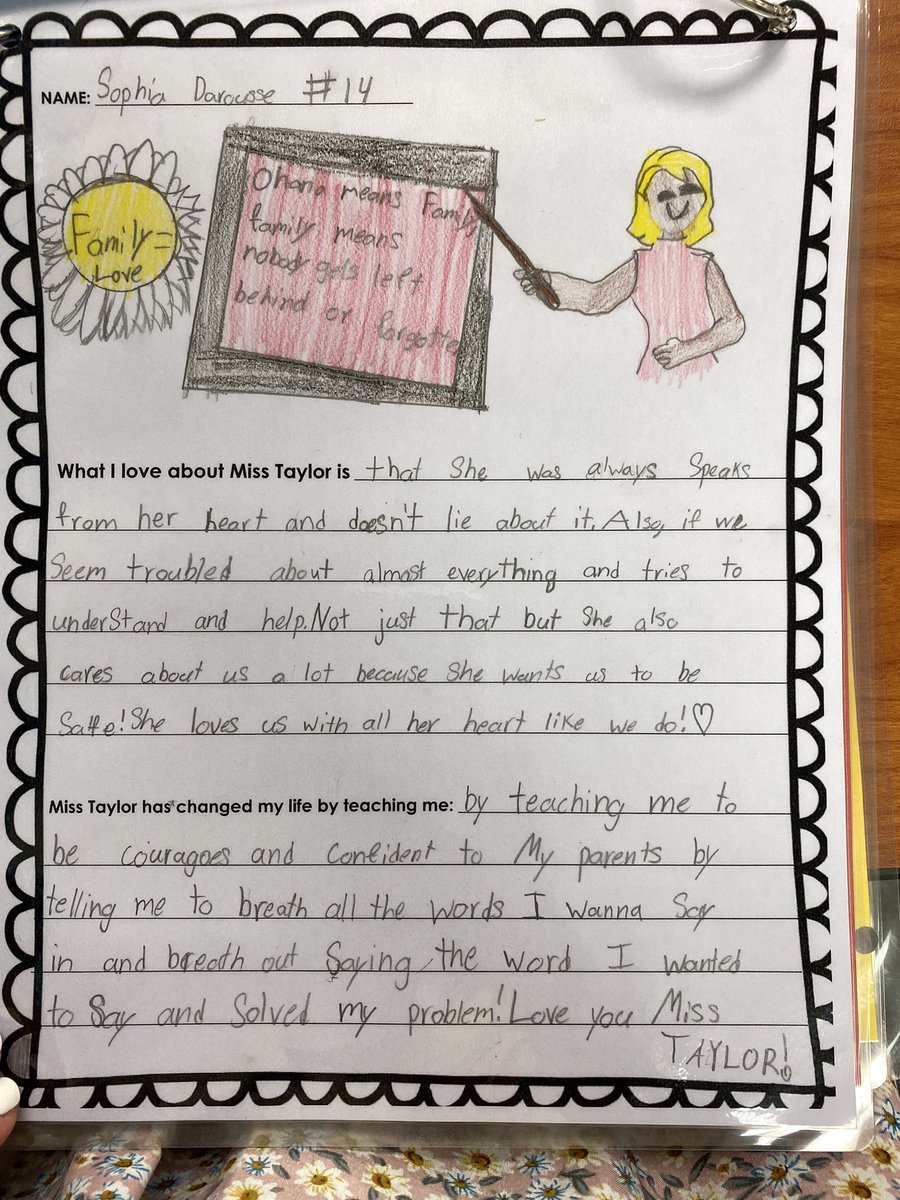 NAME: Sophia Darousse #14
Family =
Love
Ohana means Family,
family means
nobody gets left
behind or forgotten
What I love about Miss Taylor is that She was always Speaks
from her heart and doesn't lie about it. Also, if we
Seem troubled about almost everything and tries to
underStand and help. Not just that but She also
cares about us a lot because She wants us to be
Safe! She loves us with all her heart like we do! ♡
Miss Taylor has changed my life by teaching me: by teaching me to
be couragoes and confident to My parents by
telling me to breath all the words I wanna Say
in and breath out Saying the word I wanted
to Say and Solved my problem! Love you Miss
TAYLOR!